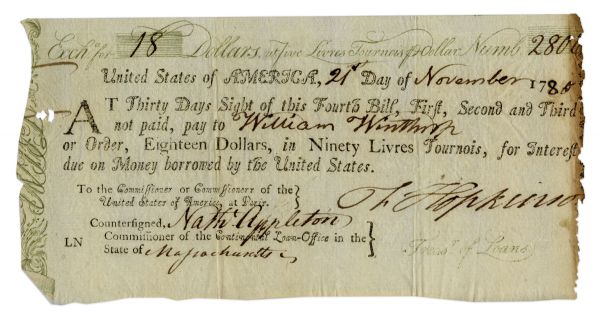 Exch.ᵉ for 18 Dollars, at five Livres Tournois ℘ Dollar. Numb. 280
United States of AMERICA, 21ˢᵗ Day of November 178
AT Thirty Days Sight of this Fourth Bill, First, Second and Third
not paid, pay to William Winthrop
or Order, Eighteen Dollars, in Ninety Livres Tournois, for Interest
due on Money borrowed by the United States.
To the Commissioner or Commissioners of the
United States of America, at Paris.
Fˢ Hopkinson
Countersigned, Nathˡ Appleton
LN Commissioner of the Continental Loan-Office in the
State of Massachusetts
Treasʳ of Loans